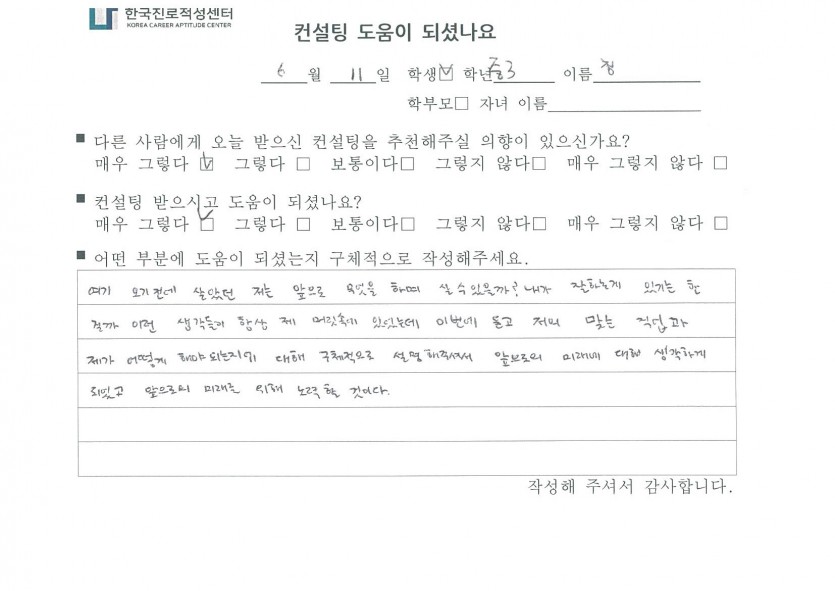 한국진로적성센터
KOREA CAREER APTITUDE CENTER
컨설팅 도움이 되셨나요
6월 11일 학생☑ 학년 중3 이름 정
학부모□ 자녀 이름
■ 다른 사람에게 오늘 받으신 컨설팅을 추천해주실 의향이 있으신가요?
매우 그렇다 ☑ 그렇다 □ 보통이다□ 그렇지 않다□ 매우 그렇지 않다 □
■ 컨설팅 받으시고 도움이 되셨나요?
매우 그렇다 ☑ 그렇다 □ 보통이다□ 그렇지 않다□ 매우 그렇지 않다 □
■ 어떤 부분에 도움이 되셨는지 구체적으로 작성해주세요.
여기 오기전에 살았던 저는 앞으로 무엇을 하며 살 수 있을까? 내가 잘하는게 있기는 한
걸까 이런 생각들이 항상 제 머릿속에 있었는데 이번에 듣고 저의 맞는 직업과
제가 어떻게 해야 되는지의 대해 구체적으로 설명해주셔서 앞으로의 미래에 대해 생각하게
되었고 앞으로의 미래를 위해 노력할 것이다.
작성해 주셔서 감사합니다.